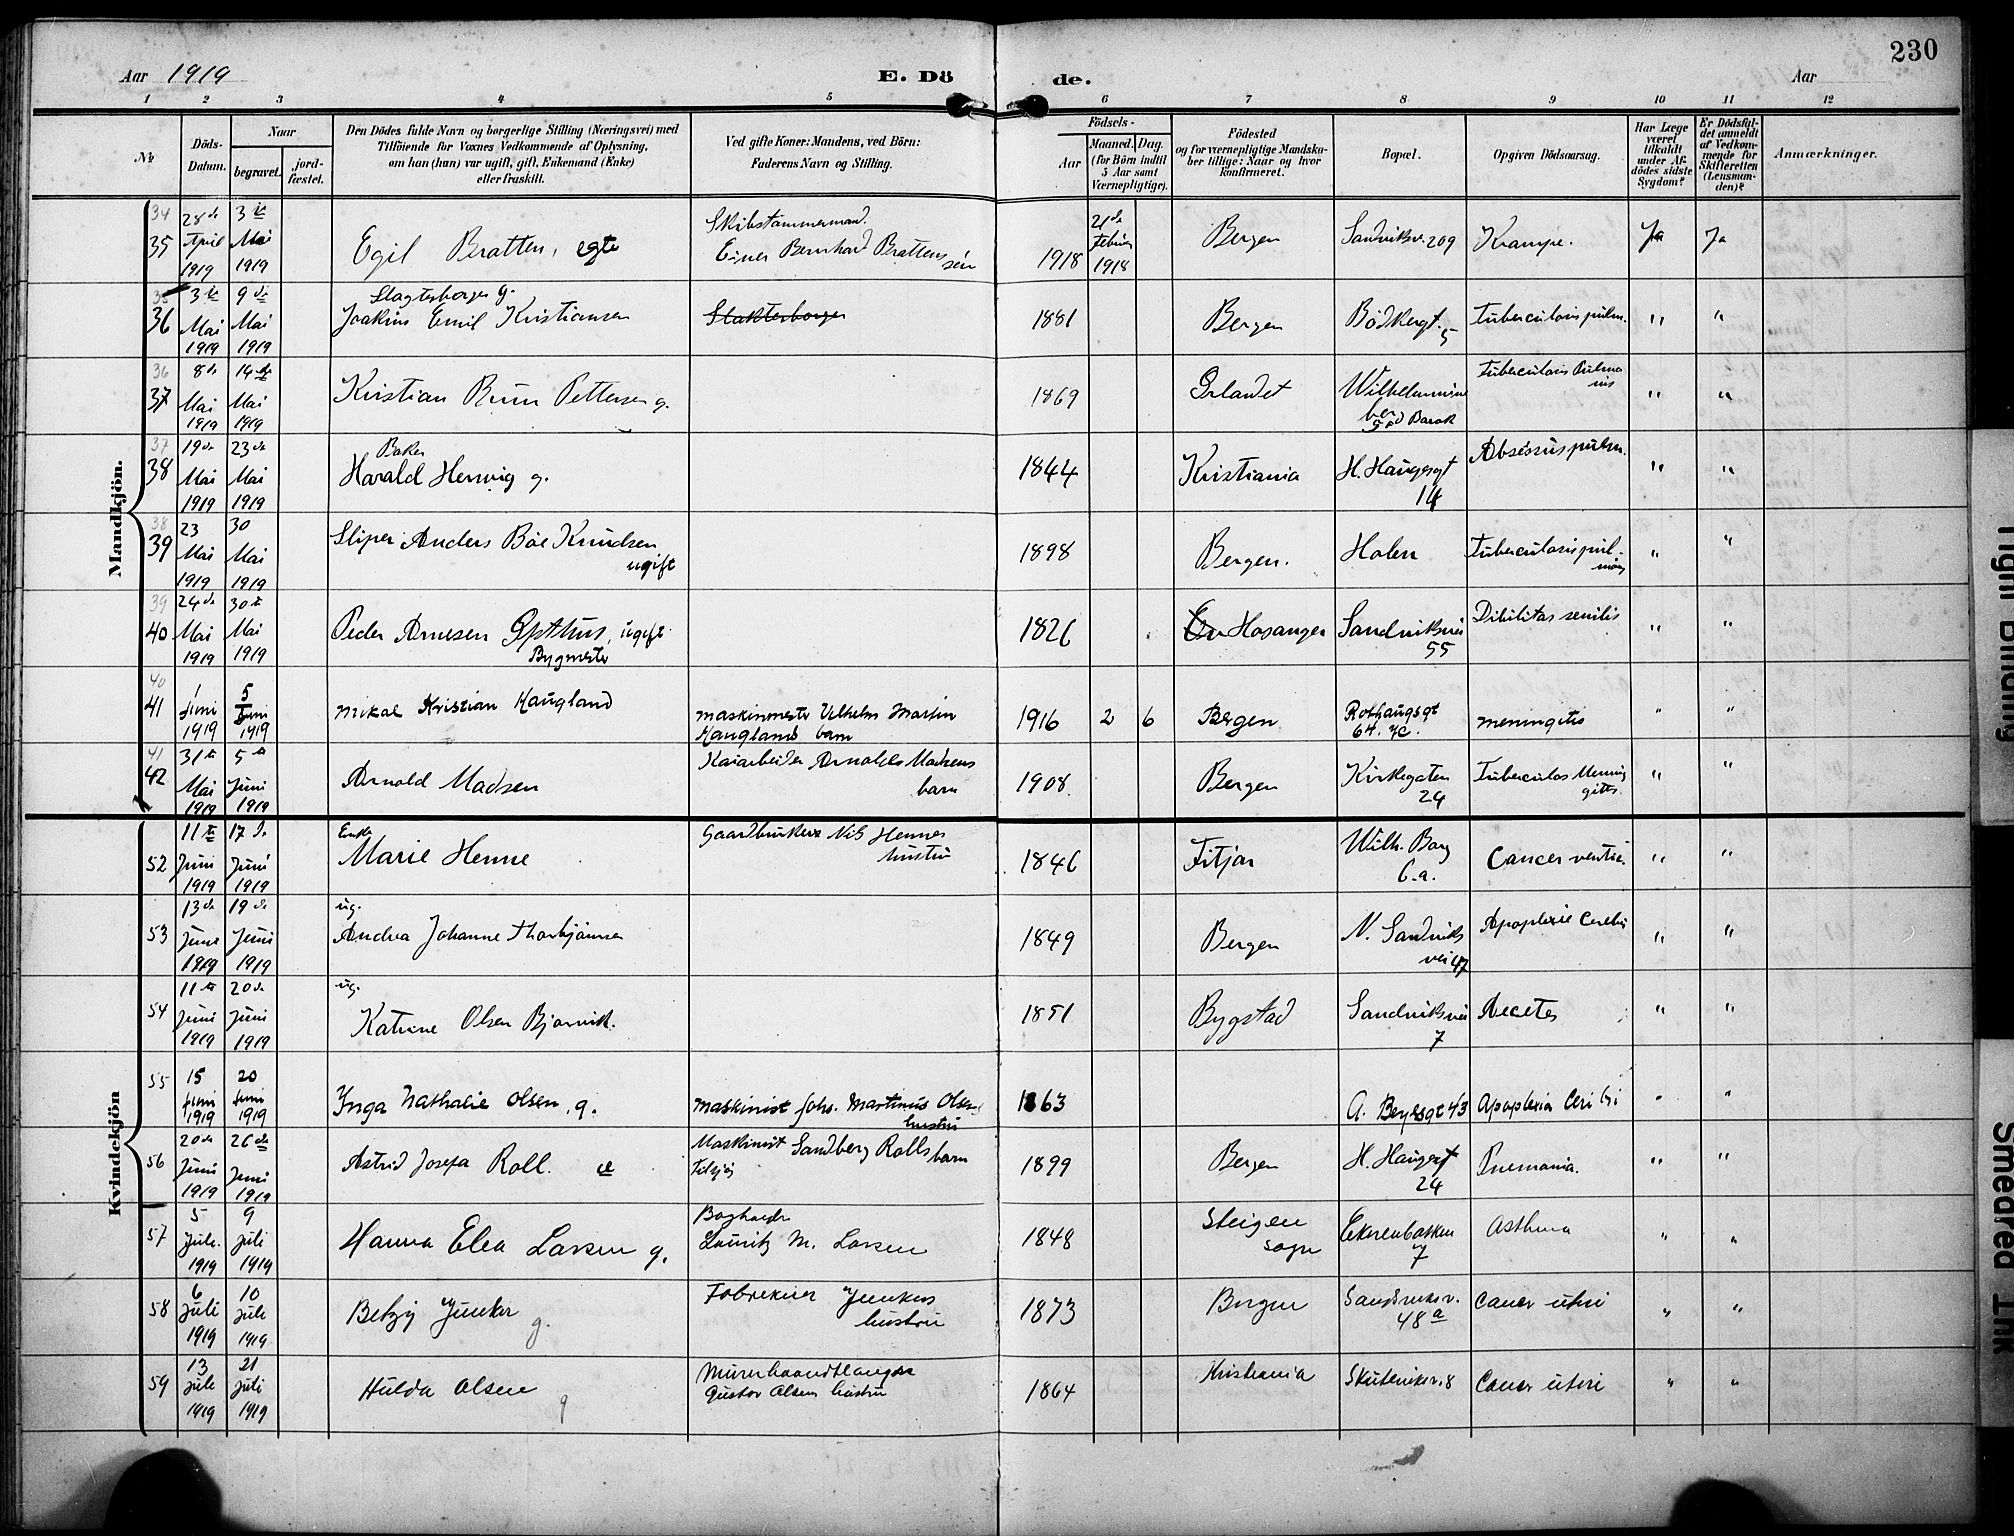 230
Aar 1919 E. Dö de. Aar
1 2 3 4 5 6 7 8 9 10 11 12
№
Döds-Datum.
Naar
begravet.
jord-fæstet.
Den Dödes fulde Navn og borgerlige Stilling (Næringsvei) med
Tilföiende for Voxnes Vedkommende af Oplysning,
om han (hun) var ugift, gift, Enkemand (Enke)
eller fraskilt.
Ved gifte Koner: Mandens, ved Börn:
Faderens Navn og Stilling.
Födsels-
Aar
Maaned. Dag.
(for Börn indtil
5 Aar samt
Værnepligtige).
Födested
og for værnepligtige Mandska-
ber tillige: Naar og hvor
konfirmeret.
Bopæl.
Opgiven Dödsaarsag.
Har Læge
været
tilkaldt
under Af-
dödes sidste
Sygdom?
Er Dödsfal-
det anmeldt
af Vedkom-
mende for
Skifteretten
(Lensman-
den)?
Anmærkninger.
Mandkjön.
34
35 28de April 1919 3die Mai 1919 Egil Bratten, egte Skibstømmermand. Einer Bernhard Brattens sön 1918 21de Februar 1918 Bergen Sandviksv. 209 Krampe. Ja Ja
35
36 3die Mai 1919 9de Mai 1919 Slagterborger g. Joakim Emil Kristiansen Slakterborger 1881 Bergen Bödkergt. 5 Tuberculosis pulm. " "
36
37 8de Mai 1919 14de Mai 1919 Kristian Pettersen g. 1869 Wilhelmine Barak Tuberculosis Pulmonis " "
37
38 19de Mai 1919 23de Mai 1919 Baker Harald Herwig g. 1844 Kristiania H. Haugesgt 14 Absessus pulm. " "
38
39 23 Mai 1919 30 Mai 1919 Sliper Anders Böe Knudsen ugift 1898 Bergen. Holen Tuberculosis pulmon " "
39
40 24de Mai 1919 30te Mai 1919 Peder Arnesen Opthus, ugift Bygmester 1826 Hosanger Sandviksvei 55 Dibilitas senilis " "
40
41 1 Juni 1919 5 Juni 1919 Mikal Kristian Haugland maskinmester Vilhelm Martin Hauglands barn 1916 2 6 Bergen Rothaugsgt 64. meningitis " "
41
42 31te Mai 1919 5te Juni 1919 Arnold Madsen Kaiarbeider Arnolds Madsens barn 1908. Bergen Kirkegaten 24 Tuberculos Meningitis. " "
Kvindekjön
52 11te Juni 1919 17de Juni 1919 Enke Marie Henne Gaardbruker Nils Hennes hustru 1846 Fitjar Wilh. Barg 6.a. Cancer ventric. " "
53 13de Juni 1919 19de Juni 1919 ug. Andrea Johanne Thorbjörnsen 1849 Bergen N. Sandviksvei 47 Apoplexie Cerebri " "
54 11te Juni 1919 20de Juni 1919 ug. Katrine Olsen Bjorvik. 1851 Bygstad Sandviksvei 7 Acetes " "
55 15 Juni 1919 20 Juni 1919 Inga Nathalie Olsen, g. maskinist Johs. Martinus Olsens hustru 1863 A. Beyersgt 43 Apoplexia Ceribri " "
56 20de Juni 1919 26de Juni 1919 Astrid Josefa Roll. Maskinist Sandberg Rolls barn 1899 Bergen H. Haugesgt 24 Pnemonia. " "
57 5 Juli 1919 9 Juli 1919 Hanna Elea Larsen g. Lauritz M. Larsen 1848 Steigen sogn Ekrenbakken 7 Asthma " "
58 6 Juli 1919 10 Juli 1919 Betzy Juncker g. Fabrekeier Junckers hustru 1873 Bergen Sandviksv. 48a Cancer uteri " "
59 13 Juli 1919 21 Juli 1919 Hulda Olsen g Murerhaandtlanger Gustav Olsens hustru 1864 Kristiania Skuteviksv. 8 Cancer uteri " "
Tight Binding
Smeared Ink